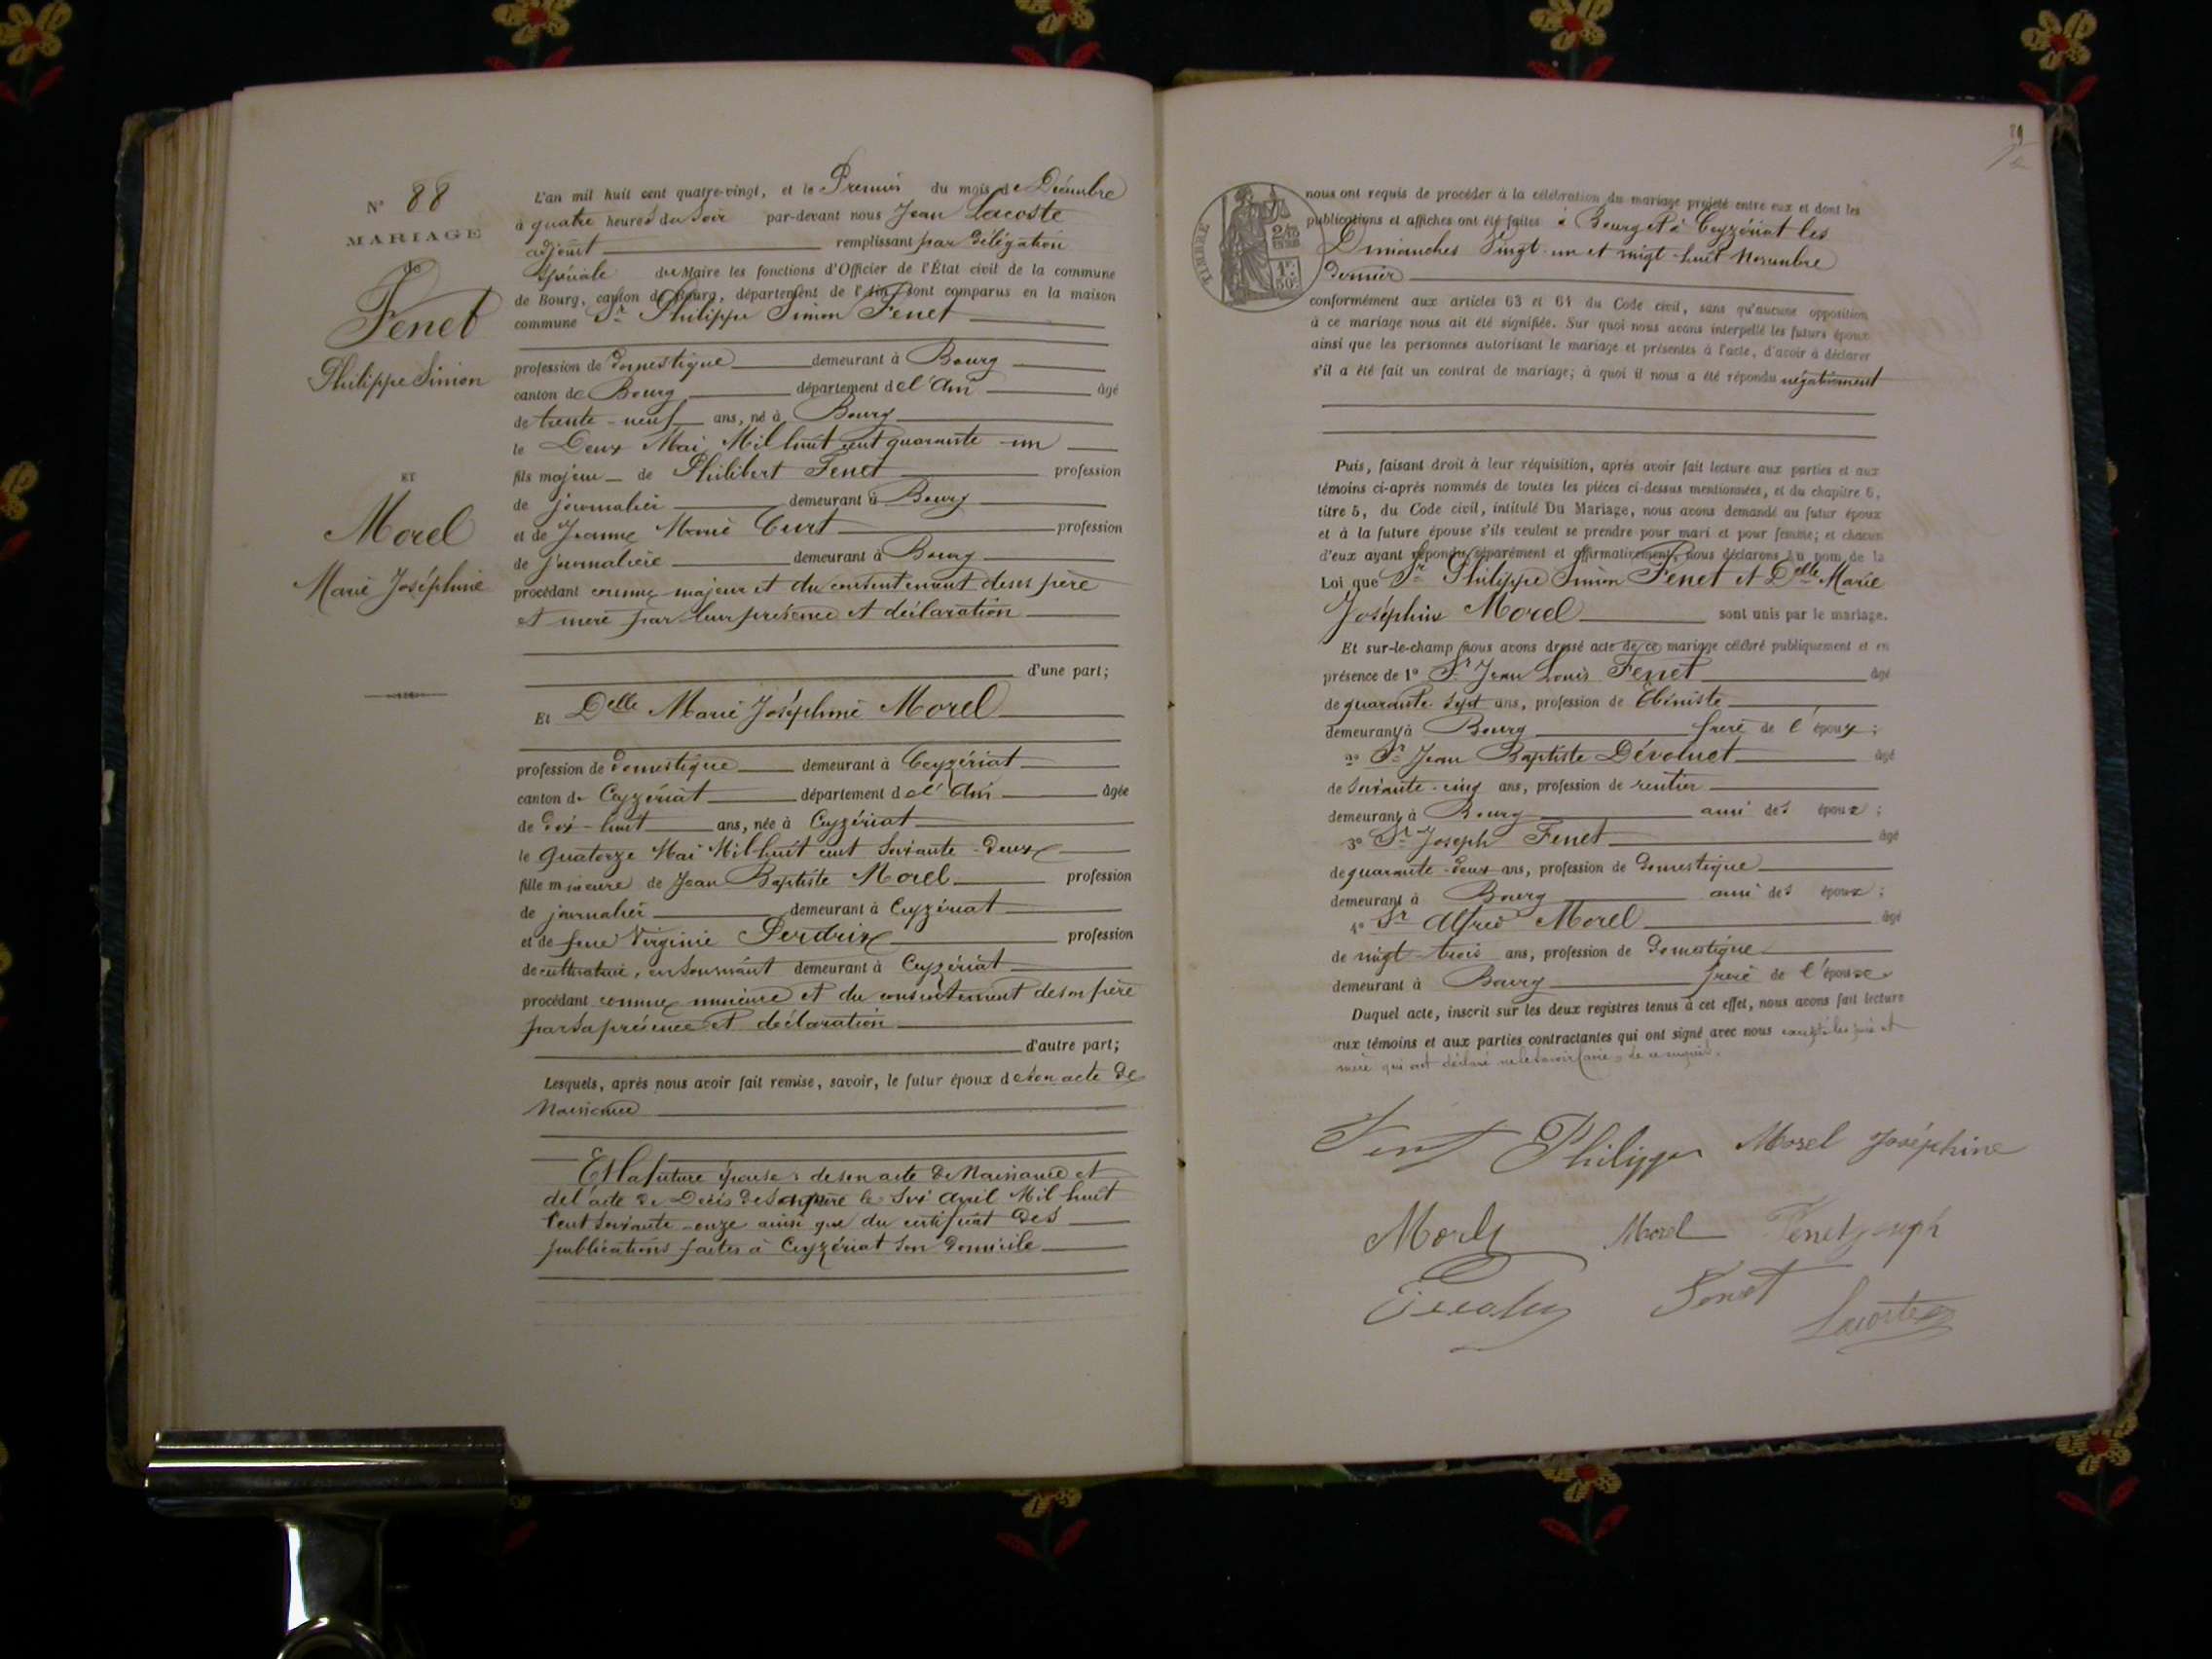 N° 88
MARIAGE
de
Fenet
Philippe Simon
ET
Morel
Marie Joséphine
L'an mil huit cent quatre-vingt, et le Premier du mois de Décembre
à quatre heures du soir par-devant nous Jean Lacoste
adjoint remplissant par délégation
spéciale du Maire les fonctions d'Officier de l'État civil de la commune
de Bourg, canton de Bourg, département de l'Ain, sont comparus en la maison
commune Sr Philippe Simon Fenet
profession de domestique demeurant à Bourg
canton de Bourg département de l'Ain âgé
de trente-neuf ans, né à Bourg
le Deux Mai Mil huit cent quarante-un
fils majeur de Philibert Fenet profession
de journalier demeurant à Bourg
et de Jeanne Marie Curt profession
de journalière demeurant à Bourg
procédant comme majeur et du consentement de ses père
et mère par leur présence et déclaration
d'une part;
Et Delle Marie Joséphine Morel
profession de domestique demeurant à Ceyzériat
canton de Ceyzériat département de l'Ain âgée
de dix-huit ans, née à Ceyzériat
le quatorze Mai Mil huit cent soixante-deux
fille mineure de Jean Baptiste Morel profession
de journalier demeurant à Ceyzériat
et de feue Virginie Perdrix profession
de cultivatrice, en son vivant demeurant à Ceyzériat
procédant comme mineure et du consentement de son père
par sa présence et déclaration
d'autre part;
Lesquels, après nous avoir fait remise, savoir, le futur époux de son acte de
Naissance
Et la future épouse: de son acte de Naissance et
de l'acte de Décès de sa mère le six avril Mil huit
Cent soixante-onze ainsi que du certificat des
publications faites à Ceyzériat son domicile
89
TIMBRE
nous ont requis de procéder à la célébration du mariage projeté entre eux et dont les
publications et affiches ont été faites à Bourg et à Ceyzériat les
Dimanches Vingt-un et vingt-huit Novembre
dernier
conformément aux articles 63 et 64 du Code civil, sans qu'aucune opposition
à ce mariage nous ait été signifiée. Sur quoi nous avons interpellé les futurs époux
ainsi que les personnes autorisant le mariage et présentes à l'acte, d'avoir à déclarer
s'il a été fait un contrat de mariage; à quoi il nous a été répondu négativement
Puis, faisant droit à leur réquisition, après avoir fait lecture aux parties et aux
témoins ci-après nommés de toutes les pièces ci-dessus mentionnées, et du chapitre 6,
titre 5, du Code civil, intitulé Du Mariage, nous avons demandé au futur époux
et à la future épouse s'ils veulent se prendre pour mari et pour femme; et chacun
d'eux ayant répondu séparément et affirmativement, nous déclarons au nom de la
Loi que Sr Philippe Simon Fenet et Delle Marie
Joséphine Morel sont unis par le mariage.
Et sur-le-champ nous avons dressé acte de ce mariage célébré publiquement et en
présence de 1° Sr Jean Louis Fenet âgé
de quarante sept ans, profession de Ebéniste
demeurant à Bourg frère de l'époux;
2° Sr Jean Baptiste Dévoluet âgé
de soixante-cinq ans, profession de rentier
demeurant à Bourg ami des époux;
3° Sr Joseph Fenet âgé
de quarante-deux ans, profession de domestique
demeurant à Bourg ami des époux;
4° Sr Alfred Morel âgé
de vingt-trois ans, profession de domestique
demeurant à Bourg frère de l'épouse
Duquel acte, inscrit sur les deux registres tenus à cet effet, nous avons fait lecture
aux témoins et aux parties contractantes qui ont signé avec nous excepté les père et
mère qui ont déclaré ne le savoir faire de ce requis.
Fenet Philippe Morel Joséphine
Morel Morel Fenet Joseph
Fenet Lacoste